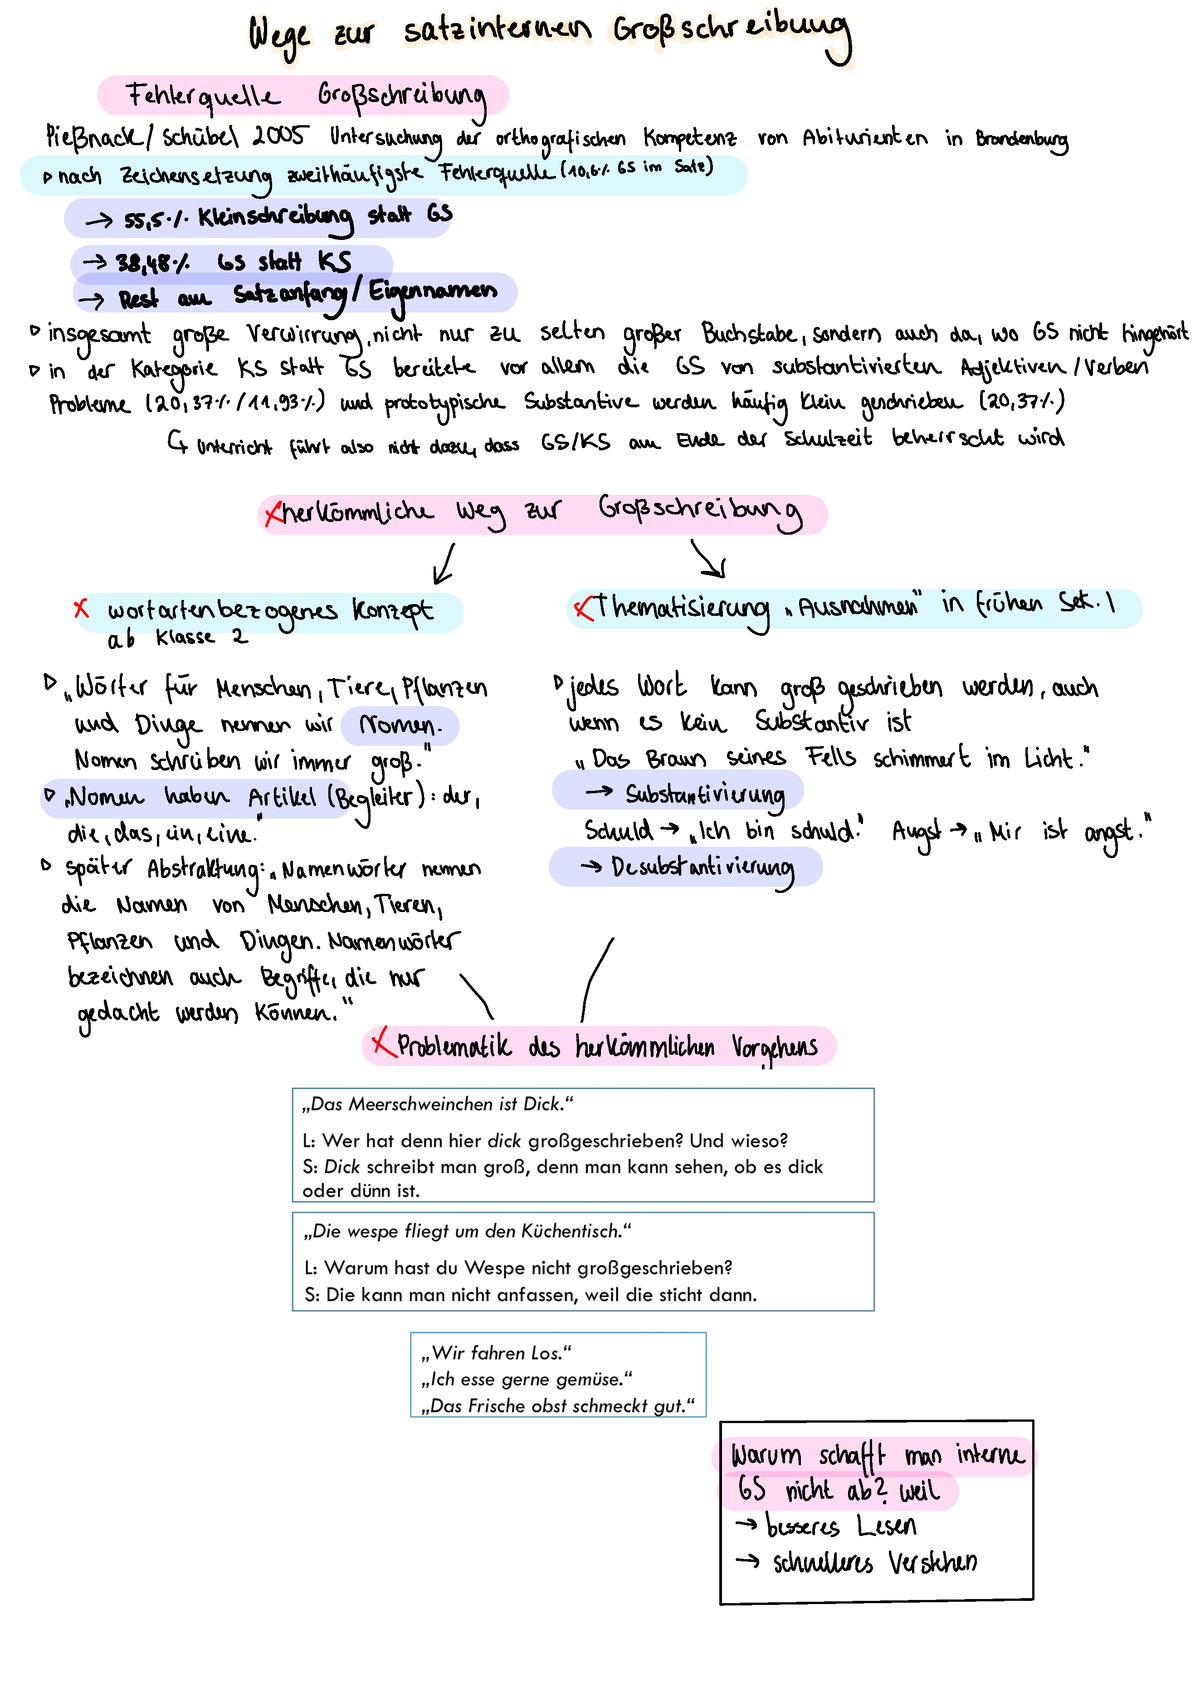 Wege zur satzinternen Großschreibung
Fehlerquelle Großschreibung
Pießnack/Schübel 2005 Untersuchung der orthografischen Kompetenz von Abiturienten in Brandenburg
▹ nach Zeichensetzung zweithäufigste Fehlerquelle (10,6% GS im Satz)
→ 55,5% Kleinschreibung statt GS
→ 38,48% GS statt KS
→ Rest am Satzanfang/Eigennamen
▹ insgesamt große Verwirrung, nicht nur zu selten großer Buchstabe, sondern auch da, wo GS nicht hingehört
▹ in der Kategorie KS statt GS bereitete vor allem die GS von substantivierten Adjektiven/Verben
Probleme (20,37%/11,93%) und prototypische Substantive werden häufig klein geschrieben (20,37%)
↳ Unterricht führt also nicht dazu, dass GS/KS am Ende der Schulzeit beherrscht wird
x herkömmliche Weg zur Großschreibung
x wortartenbezogenes Konzept
ab Klasse 2
▹ „Wörter für Menschen, Tiere, Pflanzen
und Dinge nennen wir Nomen.
Nomen schreiben wir immer groß."
▹ „Nomen haben Artikel (Begleiter): der,
die, das, ein, eine."
▹ später Abstraktung: „Namenwörter nennen
die Namen von Menschen, Tieren,
Pflanzen und Dingen. Namenwörter
bezeichnen auch Begriffe, die nur
gedacht werden können."
x Thematisierung „Ausnahmen" in frühen Sek. 1
▹ jedes Wort kann groß geschrieben werden, auch
wenn es kein Substantiv ist
„Das Braun seines Fells schimmert im Licht."
→ Substantivierung
Schuld → „Ich bin schuld." Angst → „Mir ist angst."
→ Desubstantivierung
x Problematik des herkömmlichen Vorgehens
„Das Meerschweinchen ist Dick.“
L: Wer hat denn hier dick großgeschrieben? Und wieso?
S: Dick schreibt man groß, denn man kann sehen, ob es dick
oder dünn ist.
„Die wespe fliegt um den Küchentisch.“
L: Warum hast du Wespe nicht großgeschrieben?
S: Die kann man nicht anfassen, weil die sticht dann.
„Wir fahren Los.“
„Ich esse gerne gemüse.“
„Das Frische obst schmeckt gut.“
Warum schafft man interne
GS nicht ab? weil
→ besseres Lesen
→ schnelleres Verstehen